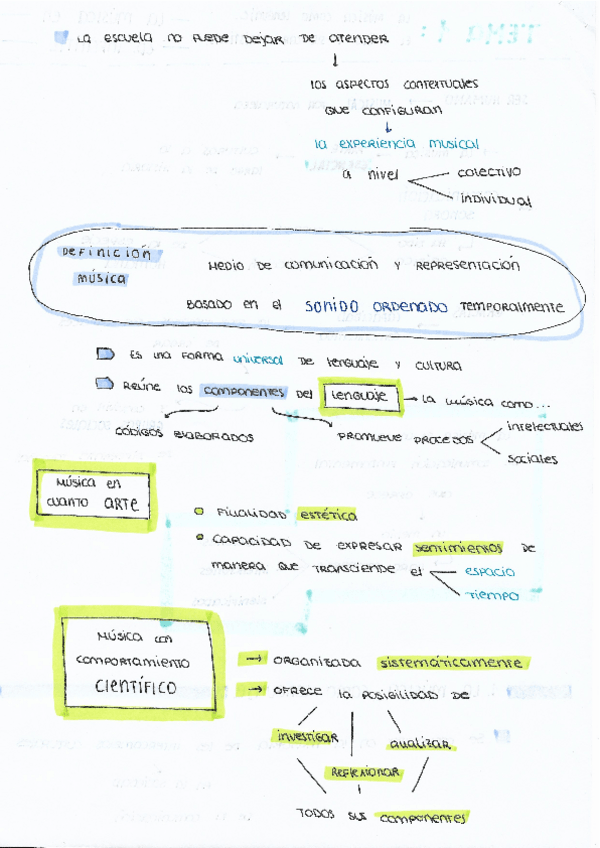 La escuela no puede dejar de atender
los aspectos contextuales
que configuran
la experiencia musical
a nivel
colectivo
individual
DEFINICIÓN
MÚSICA
Medio de comunicación y representación
basado en el sonido ordenado temporalmente
Es una forma universal de lenguaje y cultura
Reúne los componentes del lenguaje → La música como...
códigos elaborados
promueve procedos
intelectuales
sociales
Música en
cuanto ARTE
Finalidad estética
Capacidad de expresar sentimientos de
manera que transciende el
espacio
tiempo
Música con
comportamiento
CIENTÍFICO
→ Organizada sistemáticamente
→ Ofrece la posibilidad de
investigar
analizar
reflexionar
todos sus componentes